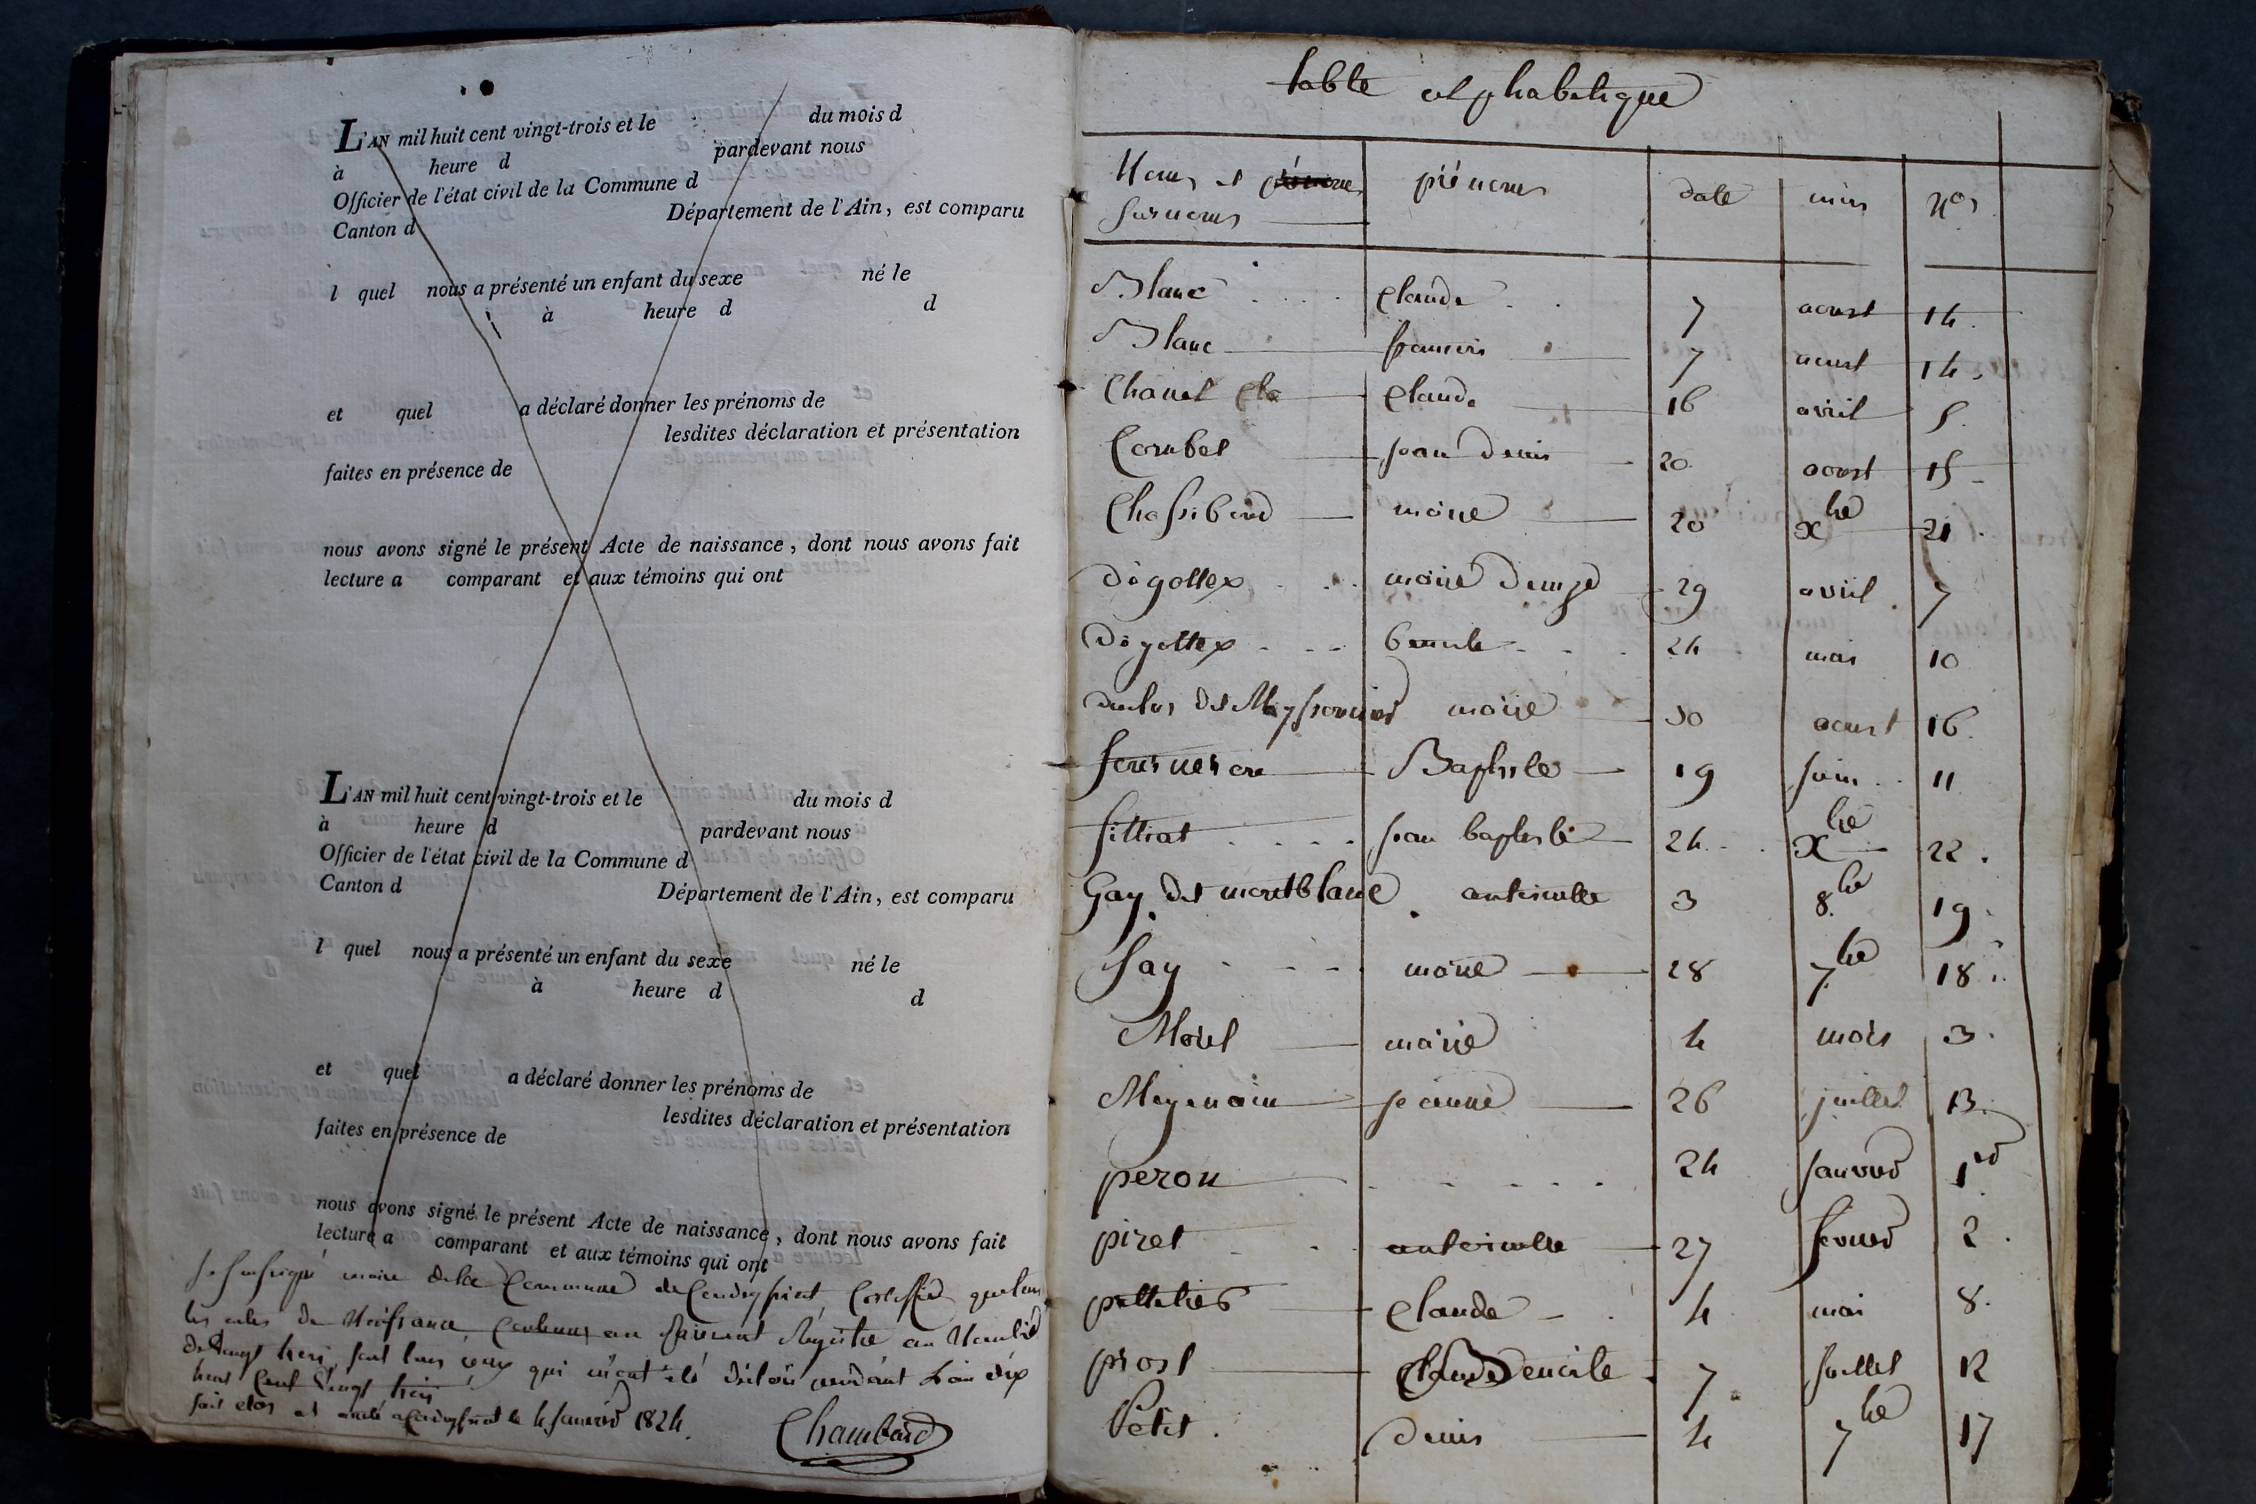 L'AN mil huit cent vingt-trois et le du mois d
à heure d pardevant nous
Officier de l'état civil de la Commune d
Canton d Département de l'Ain, est comparu
l quel nous a présenté un enfant du sexe né le
à heure d d
et quel a déclaré donner les prénoms de
lesdites déclaration et présentation
faites en présence de
nous avons signé le présent Acte de naissance, dont nous avons fait
lecture a comparant et aux témoins qui ont
L'AN mil huit cent vingt-trois et le du mois d
à heure d pardevant nous
Officier de l'état civil de la Commune d
Canton d Département de l'Ain, est comparu
l quel nous a présenté un enfant du sexe né le
à heure d d
et quel a déclaré donner les prénoms de
lesdites déclaration et présentation
faites en présence de
nous avons signé le présent Acte de naissance, dont nous avons fait
lecture a comparant et aux témoins qui ont
maire de la Commune de Certifie que tous
les actes de Naissance au présent Registre au Nombre
de vingt trois, sont tous ceux qui m'ont été pendant L'an dix
huit Cent vingt trois
fait clos et le 4 Janvier 1824.
Chambard
table alphabetique
Noms et prénoms prénoms date mois Nos
surnoms
Blanc claude 7 aoust 14.
Blanc francois 7 aoust 14.
Chanel cla claude 16 avril 5.
Combet jean denis 20 aoust 15
Chassibord marie 20 xbre 21.
dégottex marie 29 avril 7
dégottex benoite 24 mai 10
marie 30 aoust 16.
Baptiste 19 juin 11
filliat jean baptiste 24 xbre 22.
Gay dit montblanc antoinette 3 8.bre 19.
Jay marie 28 7.bre 18
Morel marie 4 mars 3.
jeanne 26 juillet 13.
peron 24 janvier 1er
piret antoinette 27 fevrier 2.
pelletier claude 4 mai 8.
prost claude 7 juillet 12
Petit. denis 4 7bre 17